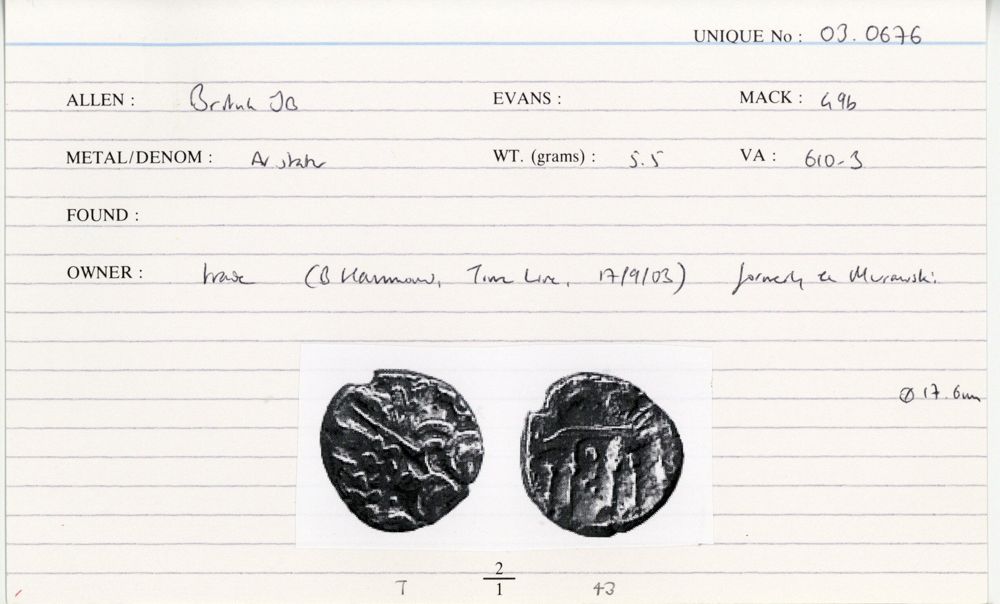 UNIQUE No : 03.0676
ALLEN : British JB EVANS : MACK : 49b
METAL/DENOM : Ar stater WT. (grams) : 5.5 VA : 610-3
FOUND :
OWNER : trade (B Hammond, Time Line, 17/9/03) formerly ex Murawski
Ø 17.6mm
2
T 1 43